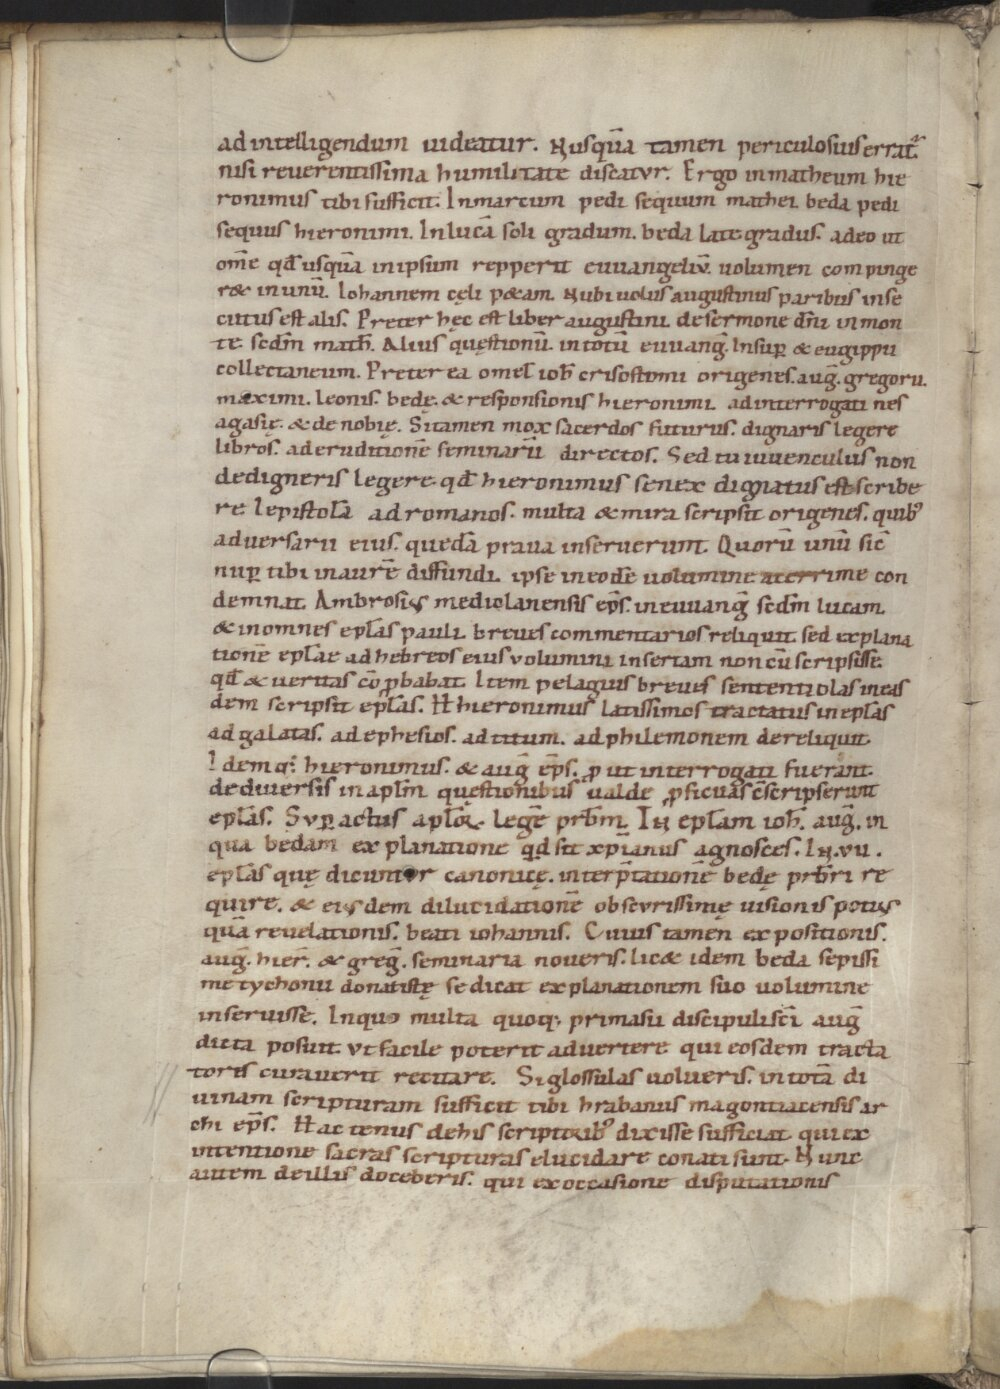 ad intelligendum uideatur. Nusquā tamen periculosius errat᷑
nisi reuerentissima humilitate discatur. Ergo in matheum hie
ronimus tibi sufficit. In marcum pedi sequum mathei beda pedi
sequus hieronimi. In lucā soli gradum. beda late gradus. adeo ut
om̄e qđ usquā in ipsum repperit euuangeliū. uolumen compinge
r& in unū. Iohannem cęli p&am. Nubiuolus augustinus paribus inse
cutus est alis. Preter hęc est liber augustini de sermone dn̄i in mon
te. secdm̄ math̄. Alius quęstionū in totū euuanḡ. Insup̄ & eugippii
collectaneum. Preter ea omel̄ ioh̄ crisostimi origenes. auḡ. gregorii.
maximi. leonis. bedę. & responsionis hieronimi ad interrogati nes
agasię. & denobię. Si tamen mox sacerdos futurus. dignaris legere
libros. ad eruditionē feminarū directos. Sed tu iuuenculus non
dedigneris legere qđ hieronimus senex dignatus est scribe
re. Iepistolā ad romanos. multa & mira scripsit origenes. quibꝰ
aduersarii eius. quedā praua inseruerunt. Quorū unū sic̄
nup̄ tibi in aurē diffundi. ipse in eodē uolumine acerrime con
demnat. Ambrosius mediolanensis ep̄s. in euuanḡ secdm̄ lucam
& in omnes epl̄as pauli breues commentarios reliquit. sed explana
tionē epl̄ae ad hebreos eius volumini insertam non eū scripsisse
qđ & ueritas cōp̄babat. Item pelagius breues sententiolas in eas
dem scripsit epl̄as. At hieronimus latissimos tractatus in epl̄as
ad galatas. ad ephesios. ad titum. ad philemonem dereliquit
Idemq; hieronimus. & auḡ ep̄s. ꝓ ut interrogati fuerant.
de diuersis in apl̄m quęstionibus ualde ꝓficuas c̄scripserunt
epl̄as. Sup̄ actus aplōꝝ. legē prb̄m. In epl̄am ioh̄. auḡ. in
qua bedam explanatione q̄d sit xp̄ianus agnosces. In .vii.
epl̄as quę dicuntur canonicę. interp̄tationē bedę prb̄ri re
quire. & eiusdem dilucidationē obscurissimę uisionis potius
quā reuelationis. beati iohannis. Cuius tamen expositionis.
auḡ. hier̄. & greḡ. seminaria noueris. lic& idem beda sepissi
me tychonii donatistę se dicat explanationem suo uolumine
inseruisse. In quo multa quoq; primasii discipuli sc̄i auḡ
dicta posuit. ut facile poterit aduertere qui eosdem tracta
toris curauerit recitare. Si glossulas uolueris. in totā di
uinam scripturam sufficit tibi hrabanus magontiacensis ar
chi ep̄s. Hactenus de his scriptoribꝰ dixisse sufficiat qui ex
intentione sacras scripturas elucidare conati sunt. Nunc
autem de illis doceberis. qui ex occasione disputationis